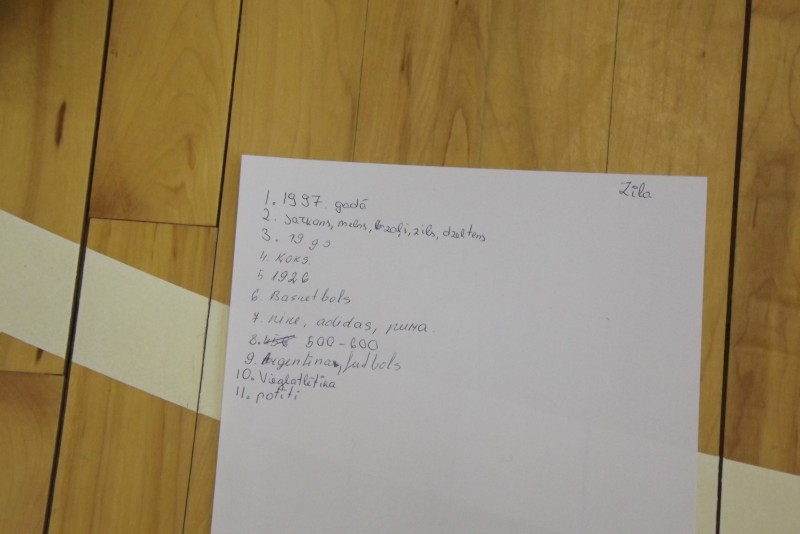 Zila
1. 1997. godā
2. sarkans, melns, zaļš, zils, dzeltens
3. 19 gs.
4. Koks
5. 1926
6. Basketbols
7. nike, adidas, puma
8. 456 500-600
9. Argentīna, futbols
10. Vieglatlētika
11. potīti